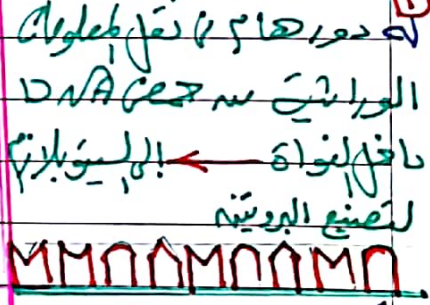 له دور هام في نقل المعلومات
الوراثية من حمض DNA
داخل النواة ← إلى السيتوبلازم
لتصنيع البروتين